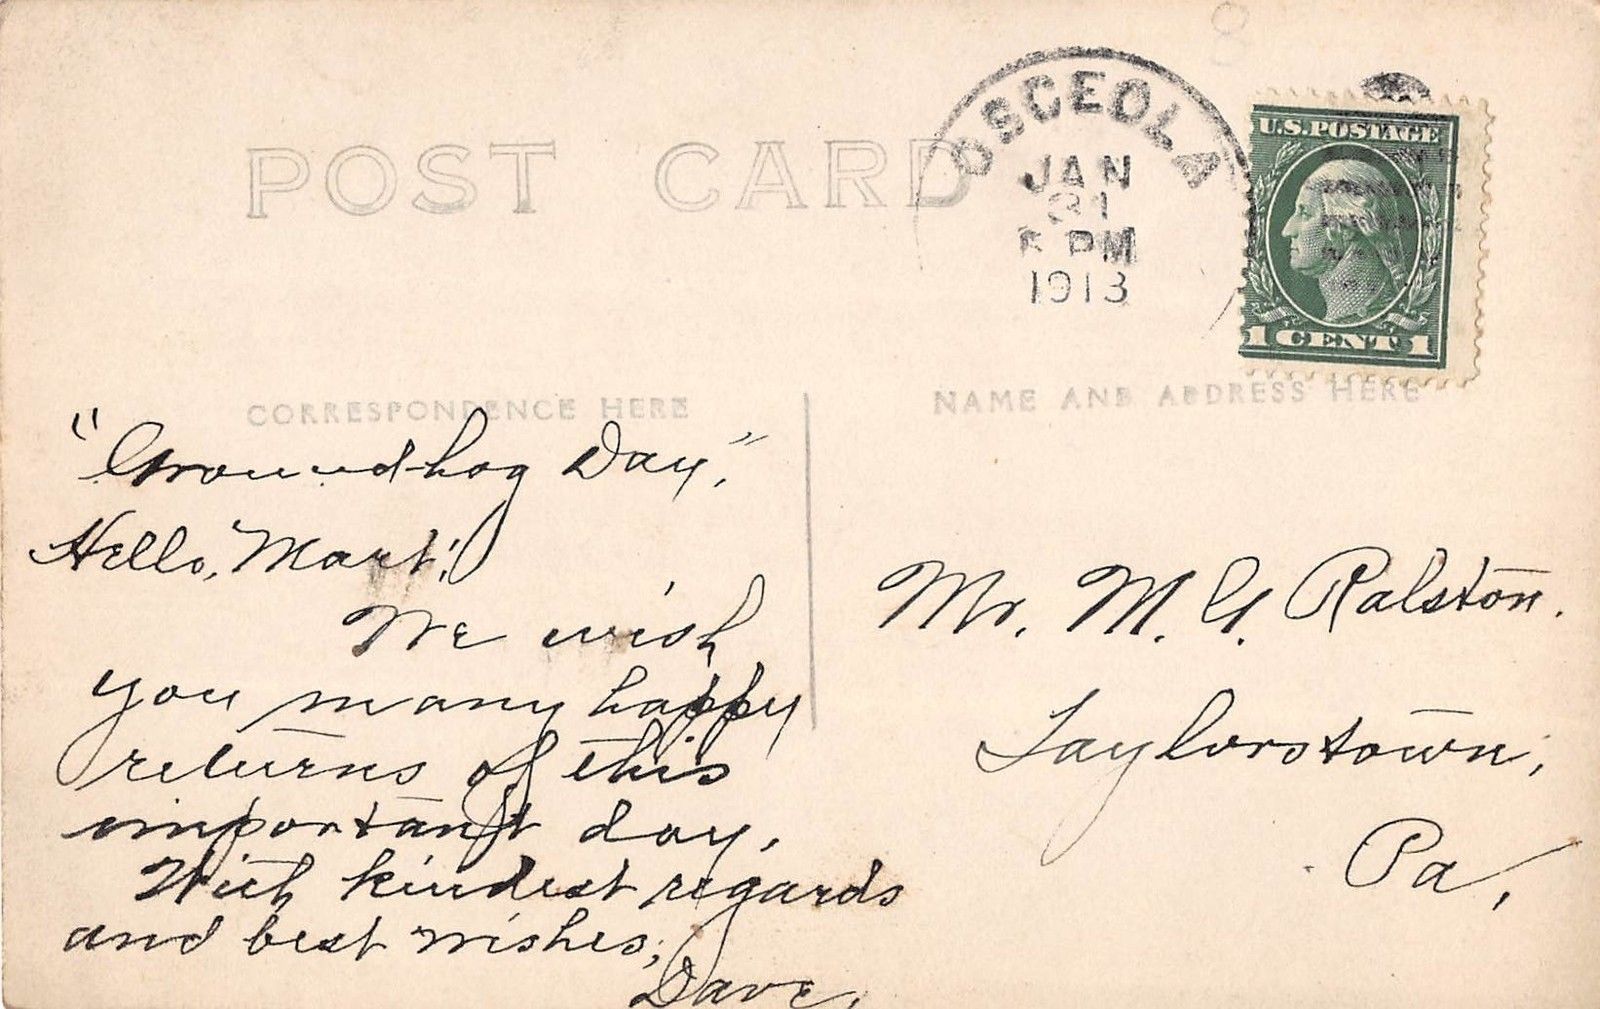 POST CARD
OSCEOLA
JAN
31
PM
1913
U.S. POSTAGE
1 CENT 1
CORRESPONDENCE HERE
NAME AND ADDRESS HERE
"Ground-hog Day".
Hello, Mart!
We wish
you many happy
returns of this
important day.
With kindest regards
and best wishes,
Dave.
Mr. M. G. Ralston.
Taylorstown,
Pa.